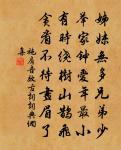 姊妹無多兄弟少
舉家鍾愛年最小
有時繞樹山鵲飛
貪看不待畫眉了
施肩吾效古詞詞典網
集